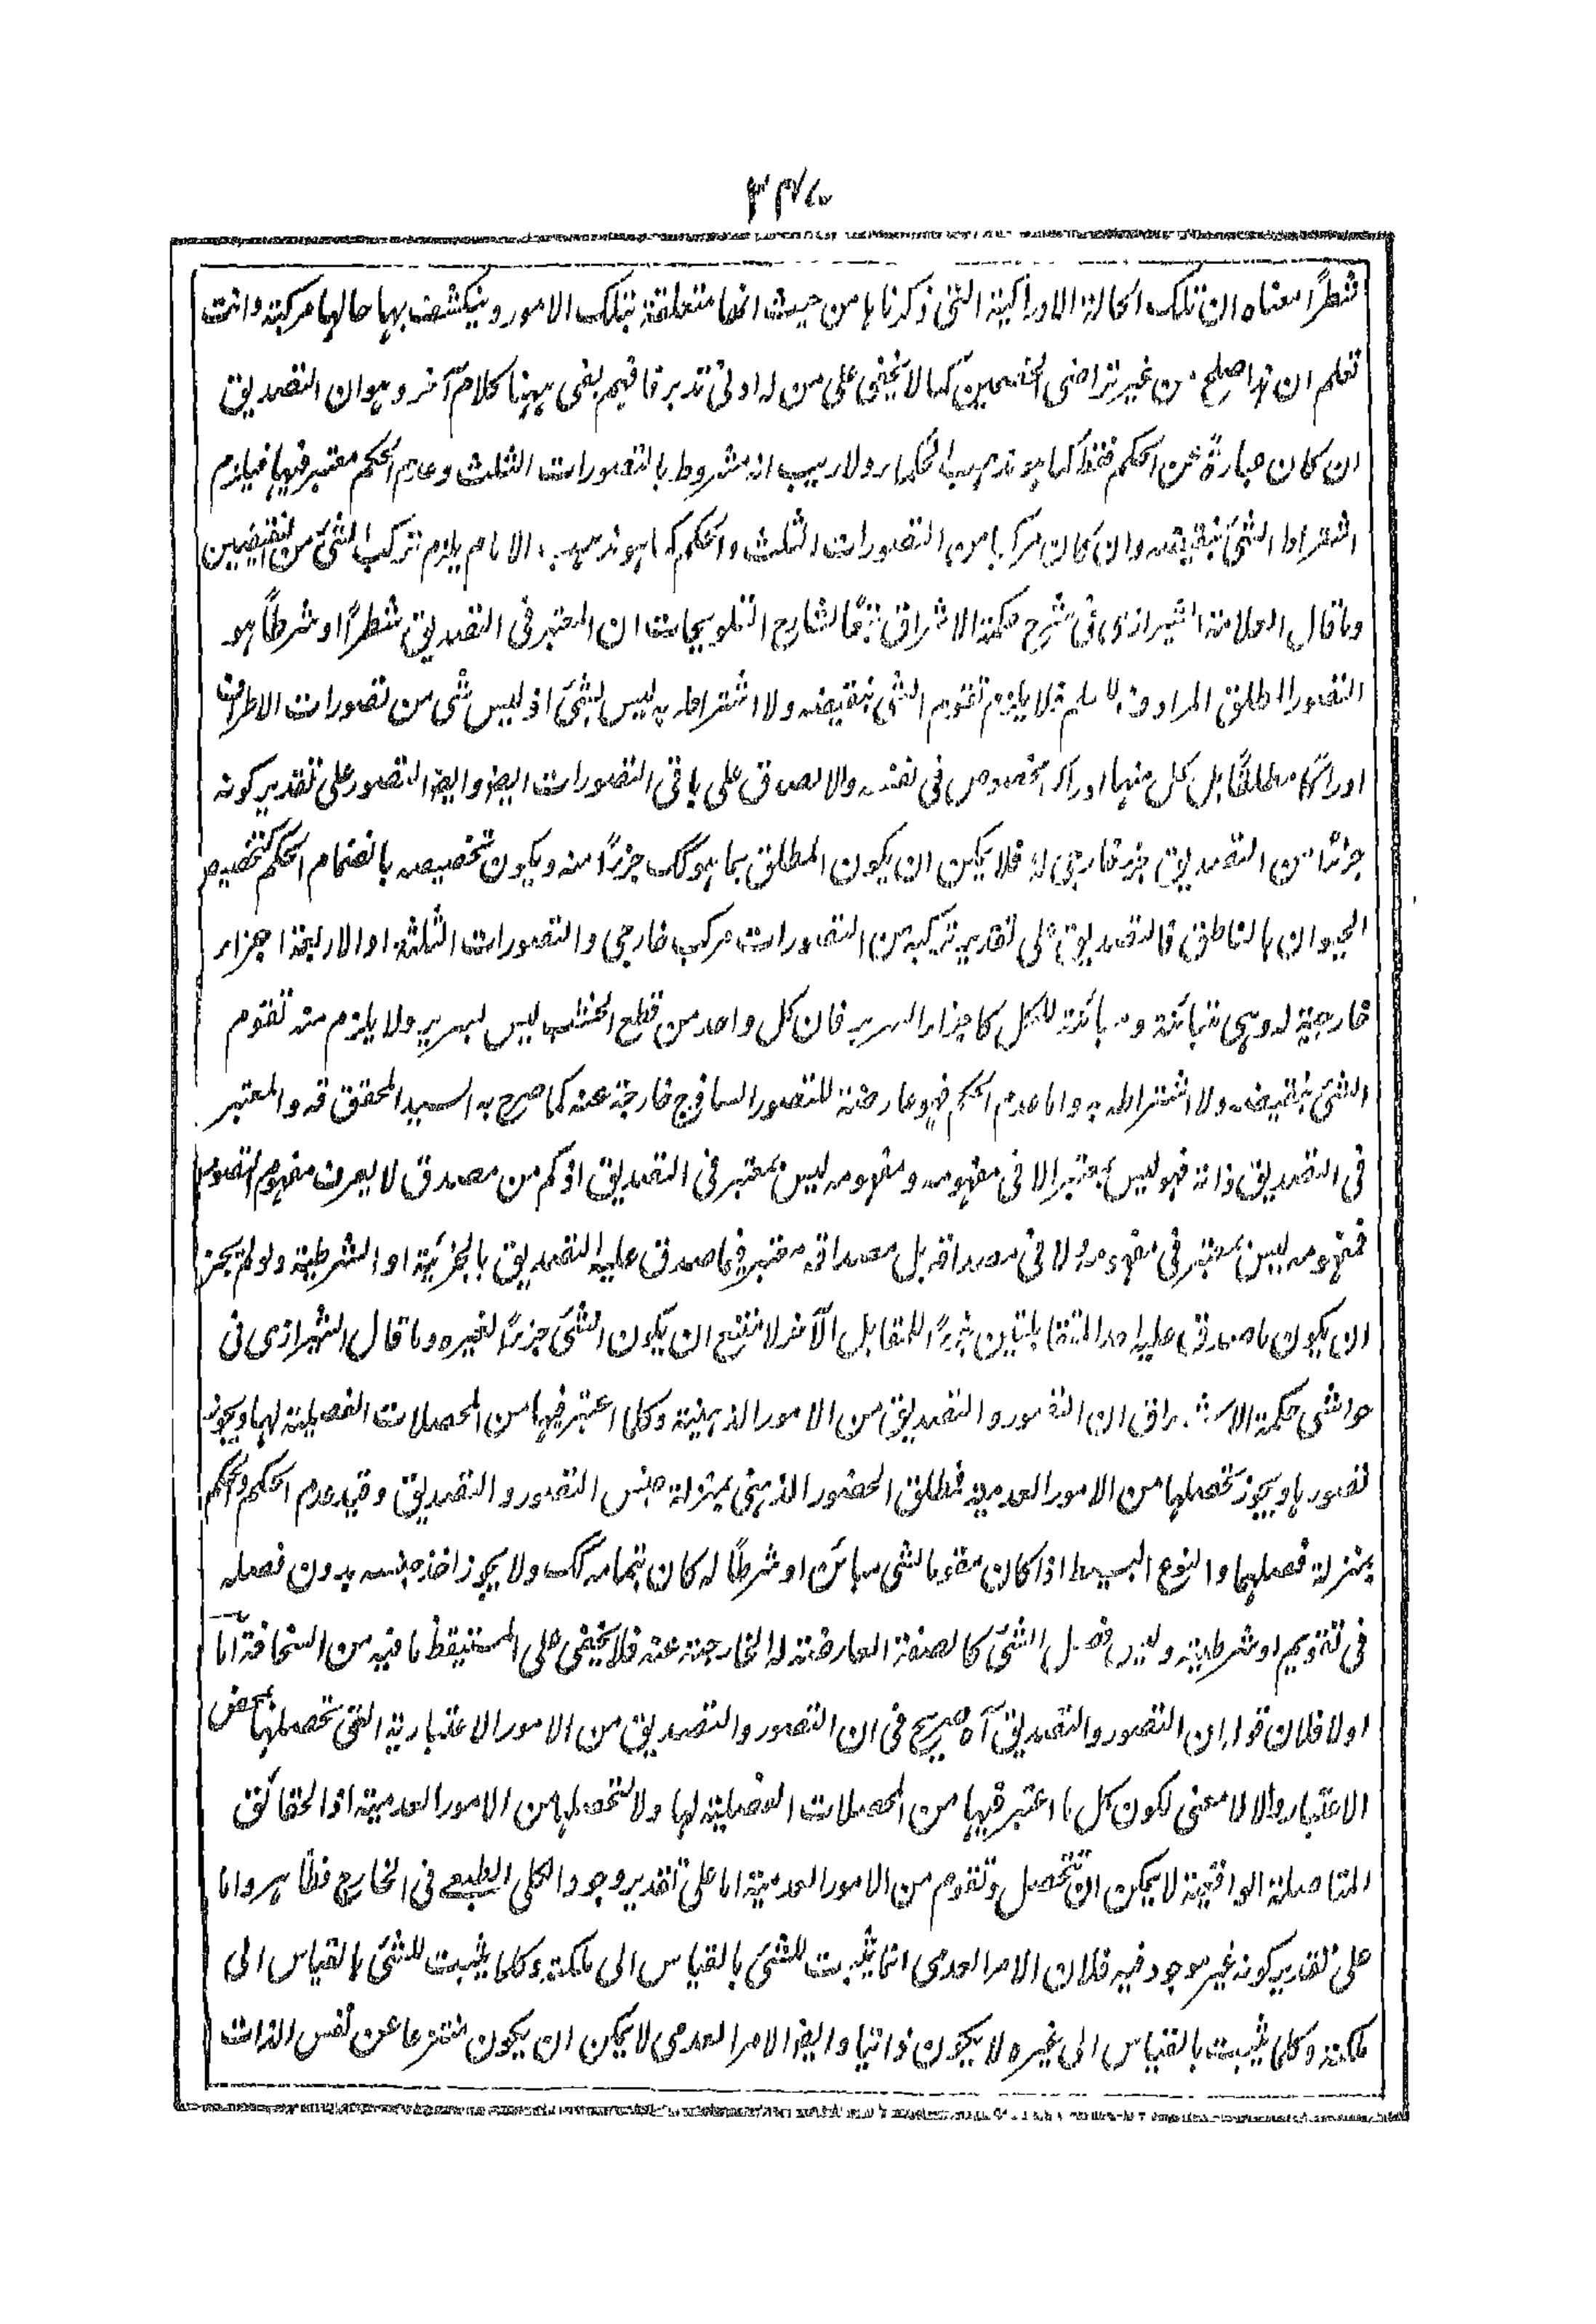 شطرًا معناه ان تلك الحالة الادراكية التى ذكرناها من حيث انها متعلقة بتلك الامور وينكشف بها حالها مركبة وانت
تعلم ان هذا صلح من غير تراضى الخصمين كما لا يخفى على من له ادنى تدبر فافهم بقى ههنا كلام آخر وهو ان التصديق
ان كان عبارةً عن الحكم فقط كما هو مذهب الحكماء ولا ريب انه مشروط بالتصورات الثلث وعدم الحكم معتبر فيها فيلزم
اشتراط الشئ بنقيضه وان كان مركبا من التصورات الثلث والحكم كما هو مذهب الامام يلزم تركب الشئ من النقيضين
وما قال العلامة الشيرازى فى شرح حكمة الاشراق تبعًا لشارح التلويحات ان المعتبر فى التصديق شطرًا او شرطًا هو
التصور المطلق المرادف للعلم فلا يلزم تقوم الشئ بنقيضه ولا اشتراطه به ليس بشئ اذ ليس شئ من تصورات الاطراف
ادراكًا مطلقًا بل كل منها ادراك مخصوص فى نفسه والا لصدق على باقى التصورات ايضا وايضا التصور على تقدير كونه
جزئًا من التصديق جزء خارجى له فلا يمكن ان يكون المطلق بما هو كك جزءًا منه ويكون تخصيصه بانضمام الحكم كتخصيص
الحيوان بالناطق فالتصديق على تقدير تركبه من التصورات مركب خارجى والتصورات الثلثة او الاربعة اجزاء
خارجية له وهى متبائنة ومبائنة للكل كاجزاء السرير فان كل واحد من قطع الخشب ليس بسرير ولا يلزم منه تقوم
الشئ بنقيضه ولا اشتراطه به واما عدم الحكم فهو عارضة للتصور الساذج خارجة عنه كما صرح به السيد المحقق قد والمعتبر
فى التصديق ذاته فهو ليس بمعتبر الا فى مفهومه ومفهومه ليس بمعتبر فى التصديق اذ كم من مصدق لا يعرف مفهوم التصور
فمفهومه ليس بمعتبر فى مفهومه ولا فى مصداقه بل مصداقه معتبر فيما صدق عليه التصديق بالجزئية او الشرطية ولو لم يجز
ان يكون ما صدق عليه احد المتقابلتين جزءًا للمقابل الآخر لامتنع ان يكون الشئ جزءًا لغيره وما قال الشيرازى فى
حواشى حكمة الاشراق ان التصور والتصديق من الامور الذهنية وكلما اعتبر فيها من المحصلات الفصيلية لها ويجوز
تصورها ويجوز تحصلها من الامور العدمية فمطلق الحضور الذهنى بمنزلة جنس التصور والتصديق وقيد عدم الحكم والحكم
بمنزلة فصلهما والنوع البسيط اذا كان مقوما لشى مبائن او شرطًا له كان بتمامه كك ولا يجوز اخذ جنسه بدون فصله
فى تقويم او شرطيته وليس فصل الشئ كالصفة العارضة له الخارجة عنه فلا يخفى على المستيقظ ما فيه من السخافة اما
اولا فلان قوله ان التصور والتصديق آه صريح فى ان التصور والتصديق من الامور الاعتبارية التى تحصلها بمحض
الاعتبار والا لا معنى لكون كل ما اعتبر فيها من المحصلات الفصلية لها ولا لتحصلها من الامور العدمية اذ الحقائق
المتاصلة الواقعية لا يمكن ان تتحصل وتقوم من الامور العدمية اما على تقدير وجود الكلى الطبعى فى الخارج فظاهر واما
على تقدير كونه غير موجود فيه فلان الامر العدمى انما يثبت للشئ بالقياس الى ملكة وكلما يثبت للشئ بالقياس الى
ملكة وكلما يثبت بالقياس الى غيره لا يكون ذاتيا وايضا الامر العدمى لا يمكن ان يكون منتزعا عن نفس الذات